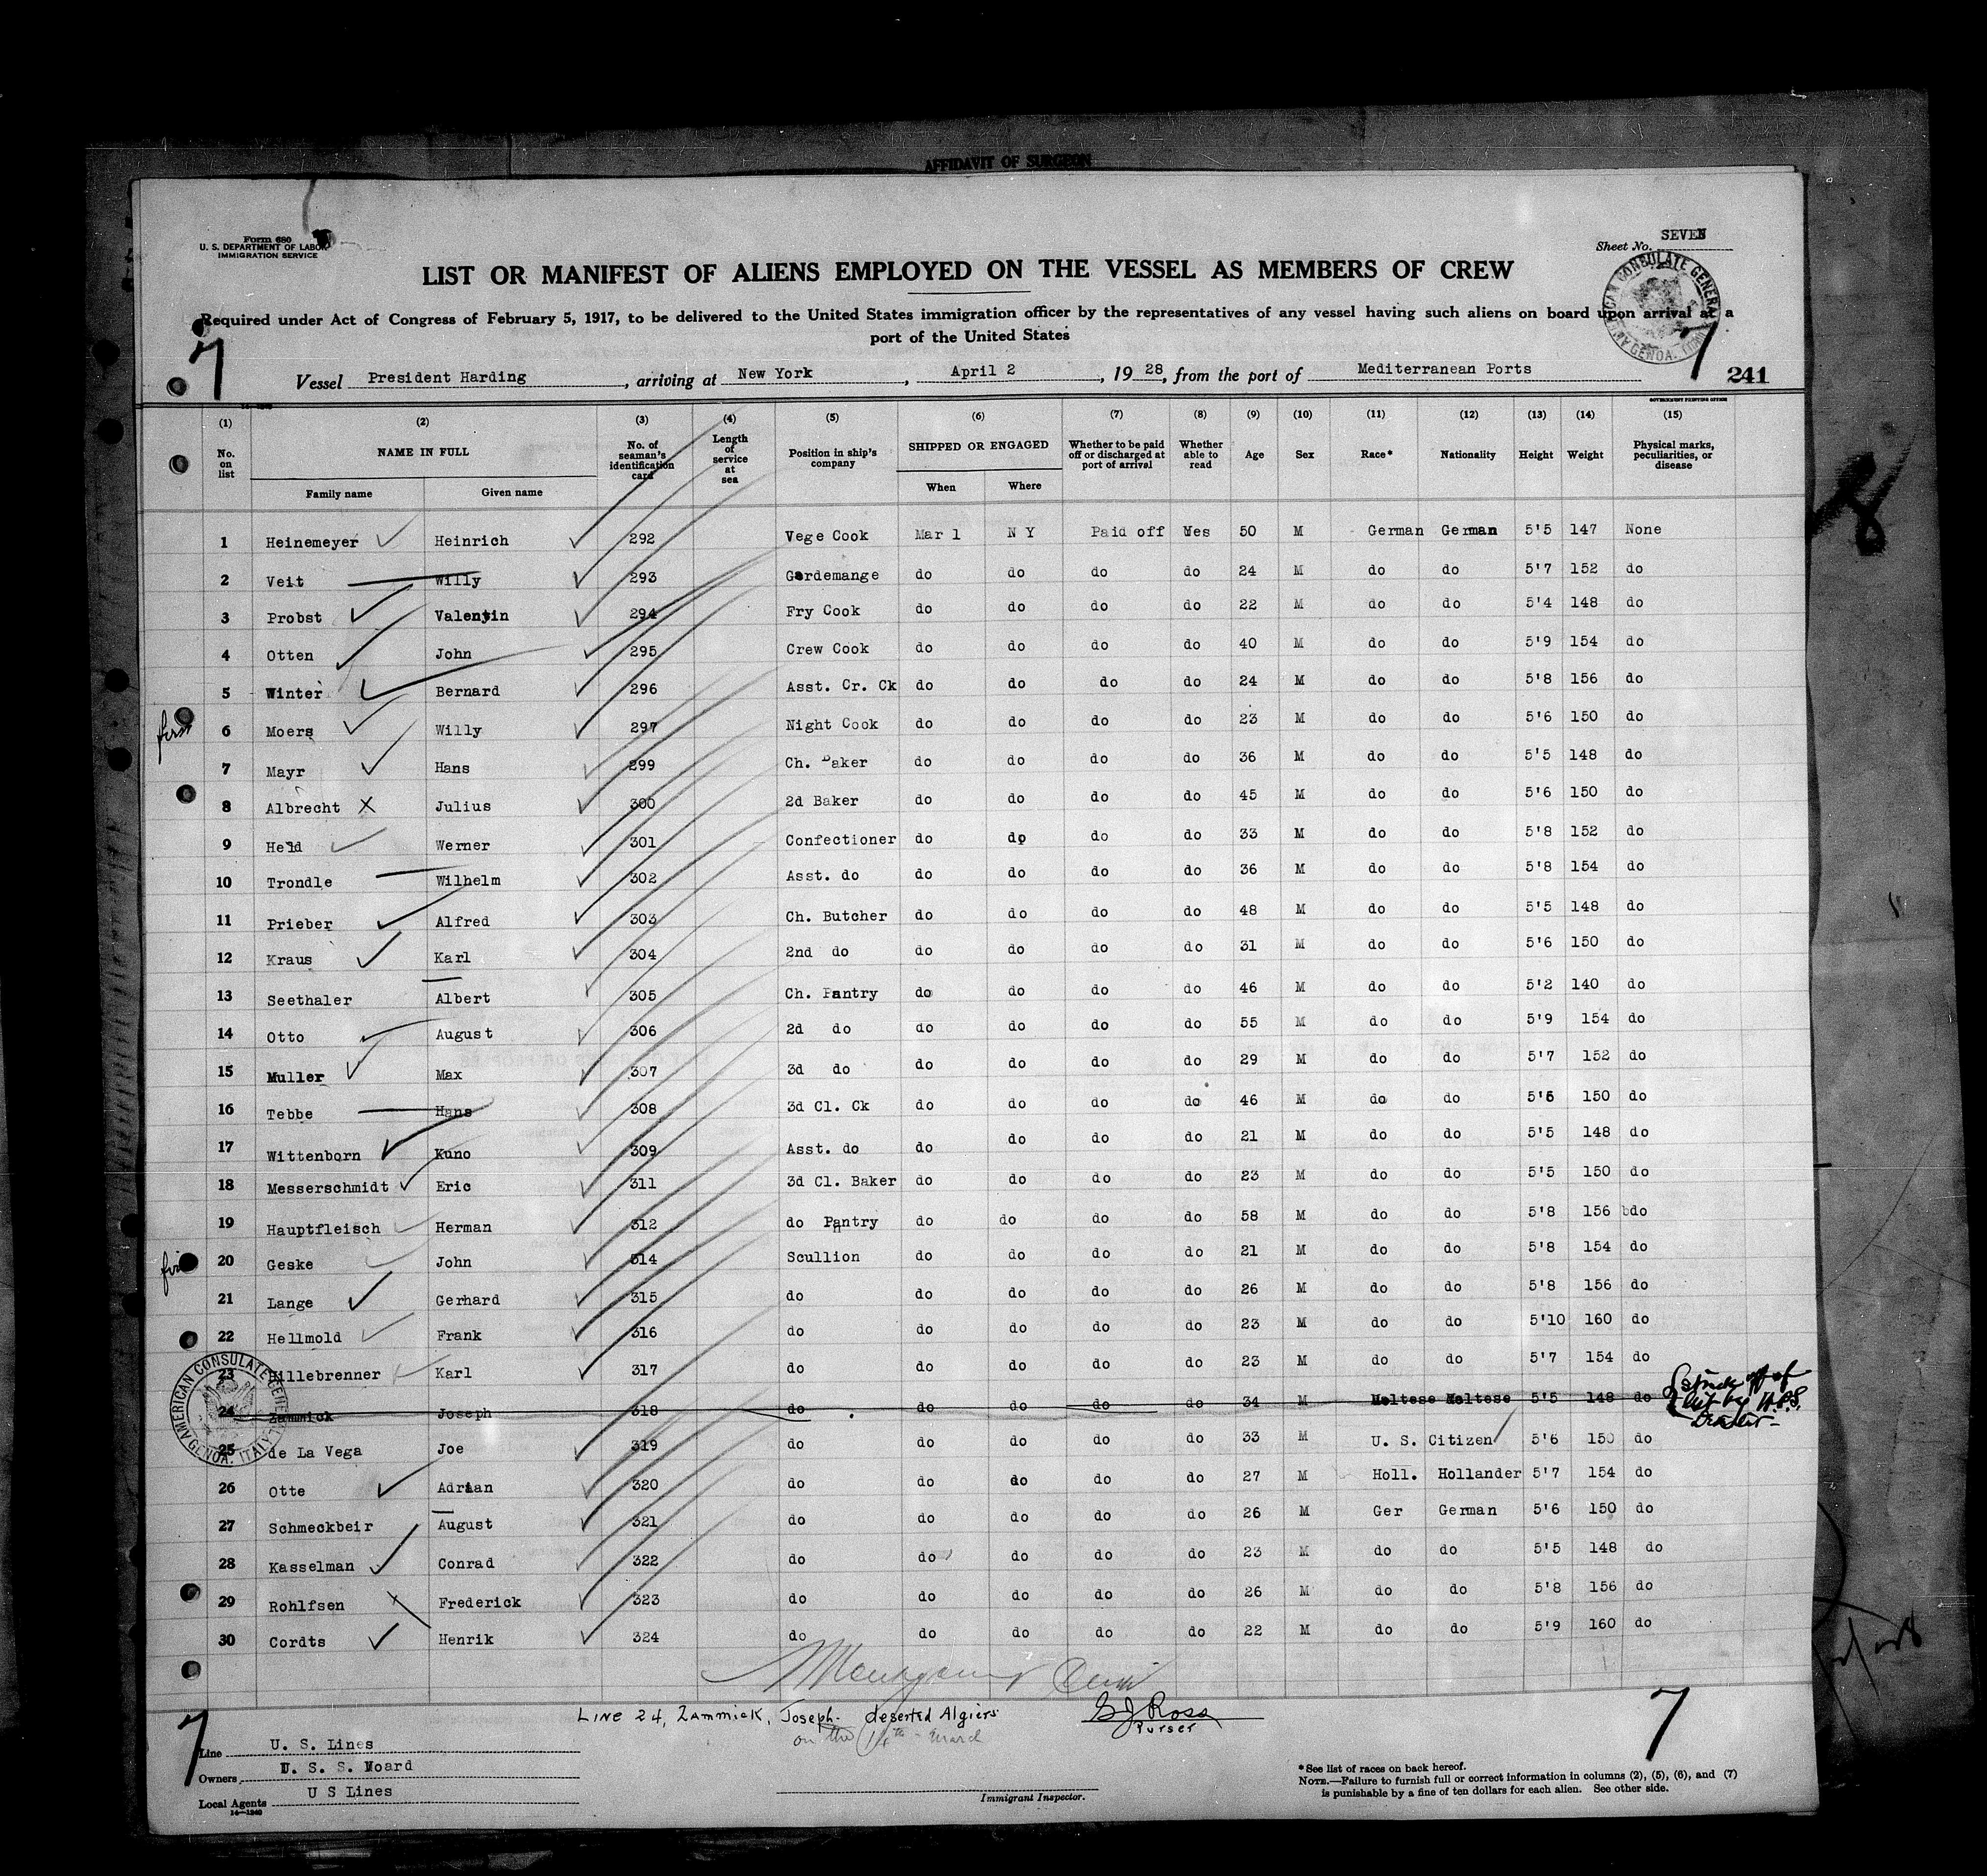 AFFIDAVIT OF SURGEON
Form 680
U. S. DEPARTMENT OF LABOR
IMMIGRATION SERVICE
Sheet No. SEVEN
LIST OR MANIFEST OF ALIENS EMPLOYED ON THE VESSEL AS MEMBERS OF CREW
Required under Act of Congress of February 5, 1917, to be delivered to the United States immigration officer by the representatives of any vessel having such aliens on board upon arrival at a
port of the United States
7 7
AMERICAN CONSULATE GENERAL GENOA, ITALY
Vessel President Harding, arriving at New York, April 2, 1928, from the port of Mediterranean Ports
241
14-1240 GOVERNMENT PRINTING OFFICE
(1) (2) (3) (4) (5) (6) (7) (8) (9) (10) (11) (12) (13) (14) (15)
No. on list NAME IN FULL No. of seaman's identification card Length of service at sea Position in ship's company SHIPPED OR ENGAGED Whether to be paid off or discharged at port of arrival Whether able to read Age Sex Race* Nationality Height Weight Physical marks, peculiarities, or disease
Family name Given name When Where
1 Heinemeyer Heinrich 292 Vege Cook Mar 1 N Y Paid off Yes 50 M German German 5'5 147 None
2 Veit Willy 293 Gardemange do do do do 24 M do do 5'7 152 do
3 Probst Valentin 294 Fry Cook do do do do 22 M do do 5'4 148 do
4 Otten John 295 Crew Cook do do do do 40 M do do 5'9 154 do
5 Winter Bernard 296 Asst. Cr. Ck do do do do 24 M do do 5'8 156 do
first
6 Moers Willy 297 Night Cook do do do do 23 M do do 5'6 150 do
7 Mayr Hans 299 Ch. Baker do do do do 36 M do do 5'5 148 do
8 Albrecht X Julius 300 2d Baker do do do do 45 M do do 5'6 150 do
9 Held Werner 301 Confectioner do do do do 33 M do do 5'8 152 do
10 Trondle Wilhelm 302 Asst. do do do do do 36 M do do 5'8 154 do
11 Prieber Alfred 303 Ch. Butcher do do do do 48 M do do 5'5 148 do
12 Kraus Karl 304 2nd do do do do do 31 M do do 5'6 150 do
13 Seethaler Albert 305 Ch. Pantry do do do do 46 M do do 5'2 140 do
14 Otto August 306 2d do do do do do 55 M do do 5'9 154 do
15 Muller Max 307 3d do do do do do 29 M do do 5'7 152 do
16 Tebbe Hans 308 3d Cl. Ck do do do do 46 M do do 5'6 150 do
17 Wittenborn Kuno 309 Asst. do do do do do 21 M do do 5'5 148 do
18 Messerschmidt Eric 311 3d Cl. Baker do do do do 23 M do do 5'5 150 do
19 Hauptfleisch Herman 312 do Pantry do do do do 58 M do do 5'8 156 do
20 Geske John 314 Scullion do do do do 21 M do do 5'8 154 do
21 Lange Gerhard 315 do do do do do 26 M do do 5'8 156 do
22 Hellmold Frank 316 do do do do do 23 M do do 5'10 160 do
23 Hillebrenner Karl 317 do do do do do 23 M do do 5'7 154 do
24 Zammick Joseph 318 do do do do do 34 M Maltese Maltese 5'5 148 do
Struck off of
list by H.P.S.
AMERICAN CONSULATE GENERAL GENOA, ITALY
25 de La Vega Joe 319 do do do do do 33 M U. S. Citizen 5'6 150 do
26 Otte Adrian 320 do do do do do 27 M Holl. Hollander 5'7 154 do
27 Schmeckbeir August 321 do do do do do 26 M Ger German 5'6 150 do
28 Kasselman Conrad 322 do do do do do 23 M do do 5'5 148 do
29 Rohlfsen Frederick 323 do do do do do 26 M do do 5'8 156 do
30 Cordts Henrik 324 do do do do do 22 M do do 5'9 160 do
LINE 24, ZAMMICK, Joseph. deserted Algiers
on the 14th - March
G J Ross
Purser
7 7
Line U. S. Lines
Owners U. S. S. Board
Local Agents U S Lines
14-1240
Immigrant Inspector.
*See list of races on back hereof.
NOTE.—Failure to furnish full or correct information in columns (2), (5), (6), and (7)
is punishable by a fine of ten dollars for each alien. See other side.